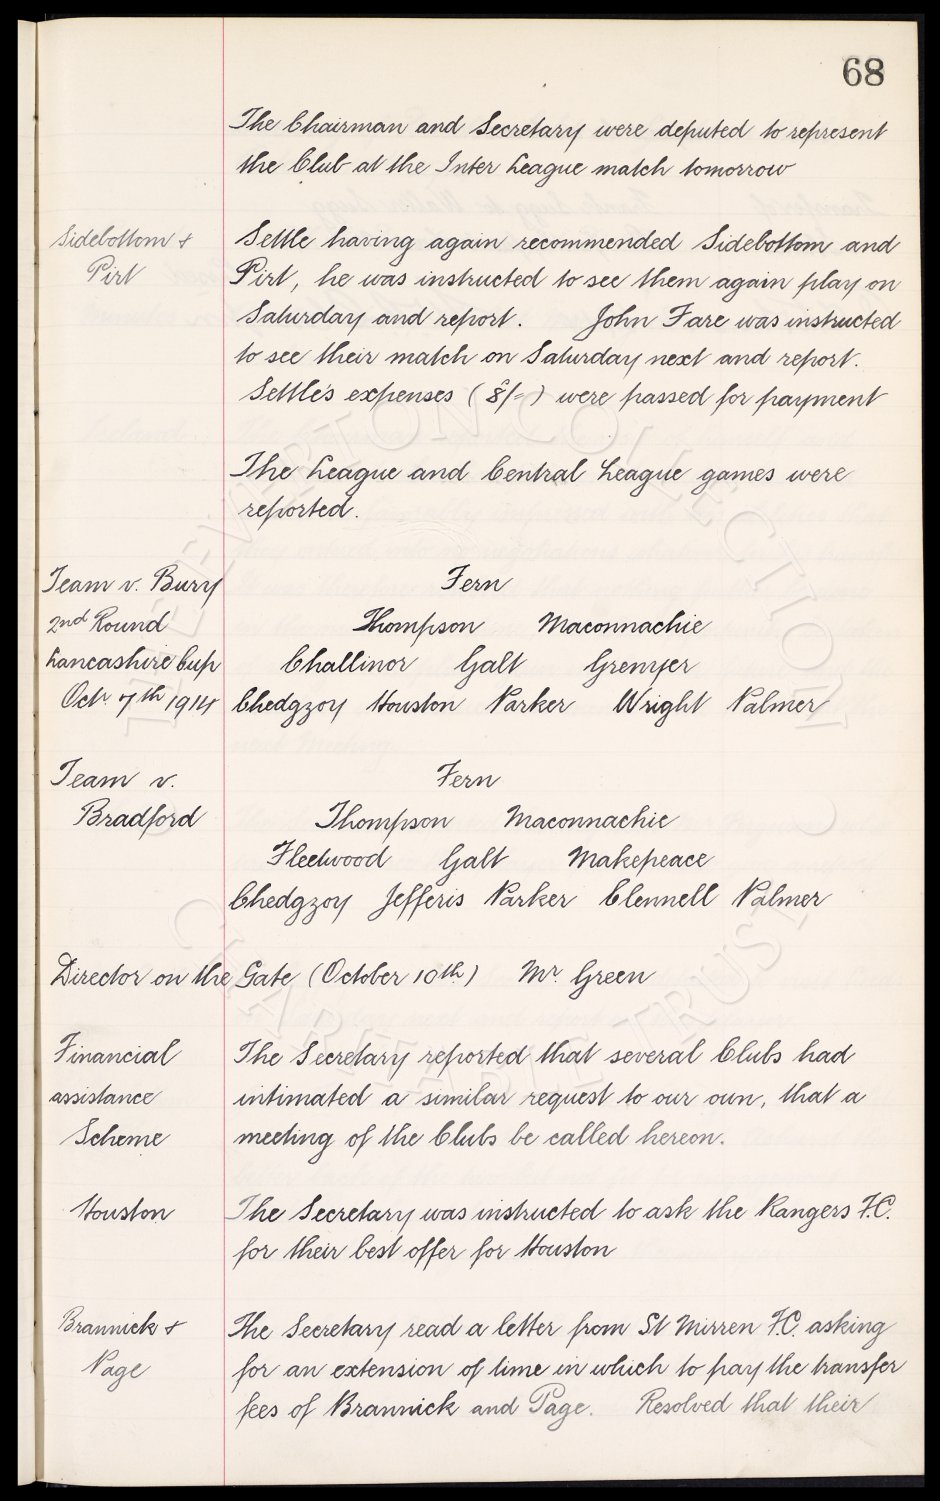 68
The Chairman and Secretary were deputed to represent
the Club at the Inter League match tomorrow
Sidebottom & Settle having again recommended Sidebottom and
Pirt Pirt, he was instructed to see them again play on
Saturday and report. John Fare was instructed
to see their match on Saturday next and report.
Settle's expenses (8/-) were passed for payment
The League and Central League games were
reported.
Team v. Bury Fern
2nd Round Thompson Maconnachie
Lancashire Cup Challinor Galt Grenyer
Oct. 7th 1914 Chedgzoy Houston Parker Wright Palmer
Team v. Fern
Bradford Thompson Maconnachie
Fleetwood Galt Makepeace
Chedgzoy Jefferis Parker Clennell Palmer
Director on the Gate (October 10th.) Mr. Green
Financial The Secretary reported that several Clubs had
assistance intimated a similar request to our own, that a
Scheme meeting of the Clubs be called hereon.
Houston The Secretary was instructed to ask the Rangers F.C.
for their best offer for Houston
Brannick & The Secretary read a letter from St Mirren F.C. asking
Page for an extension of time in which to pay the transfer
fees of Brannick and Page. Resolved that their
THE EVERTON COLLECTION
CHARITABLE TRUST